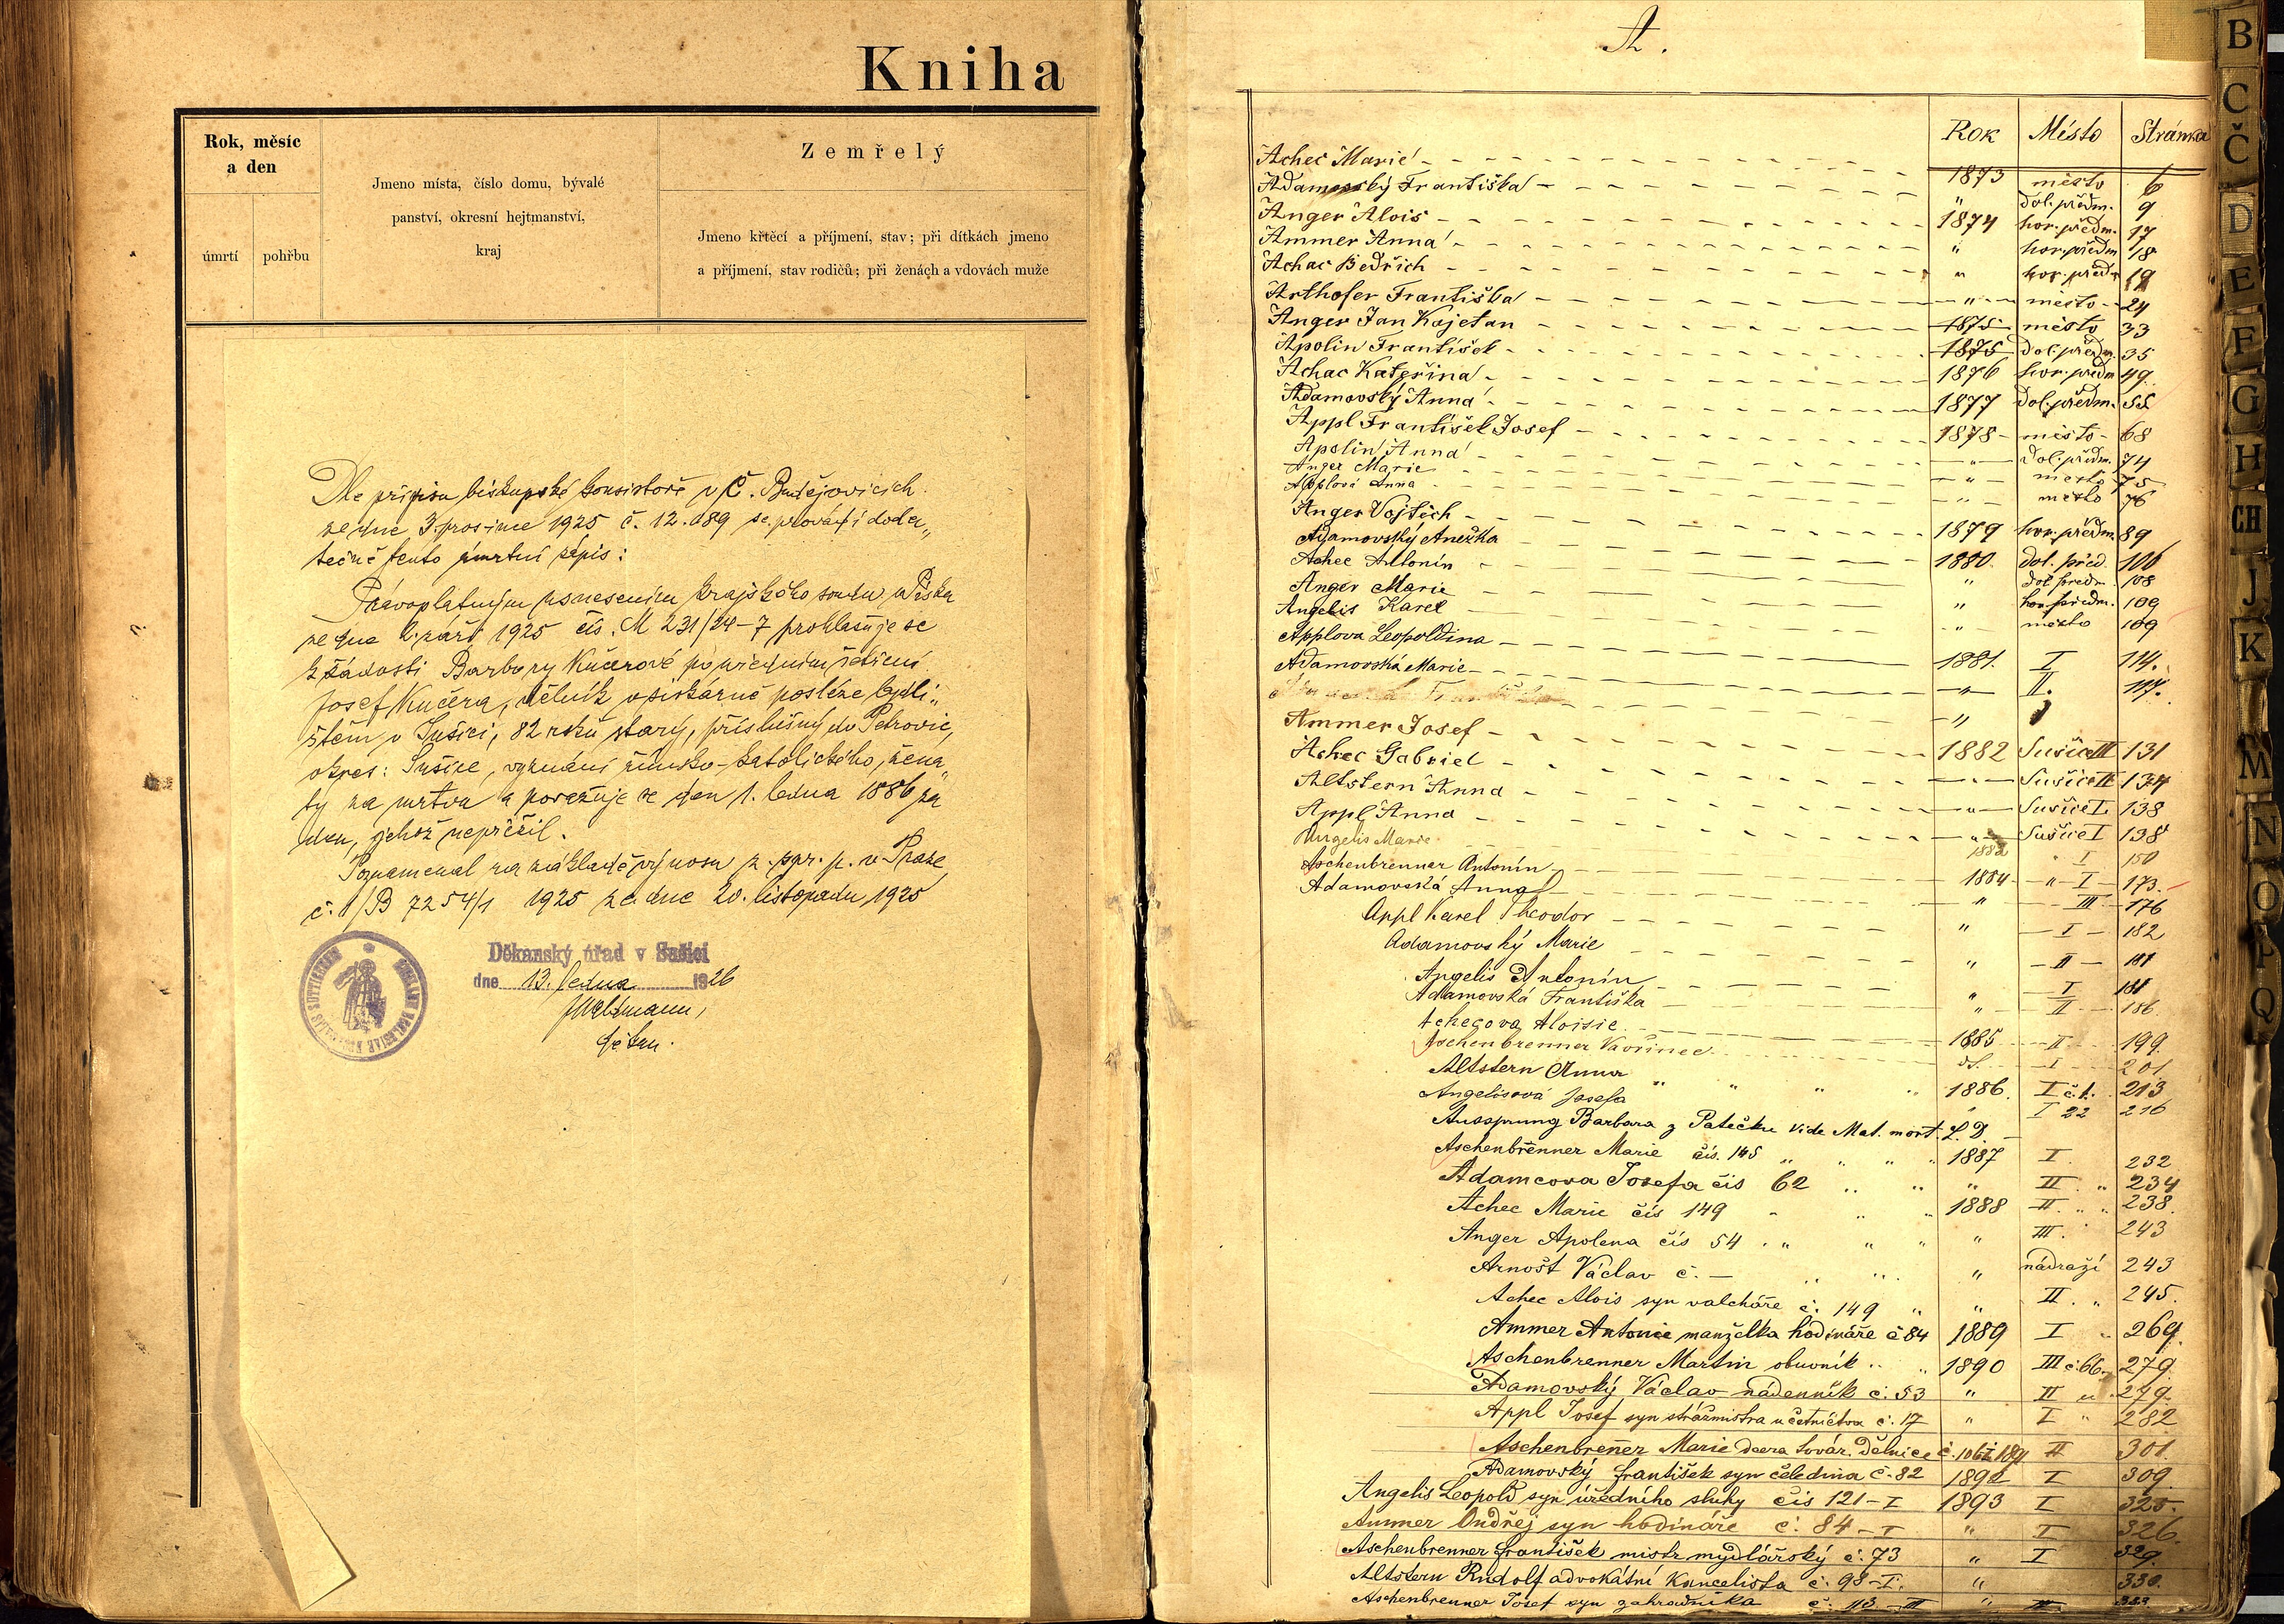 Kniha
Rok, měsíc
a den
úmrtí
pohřbu
Jmeno místa, číslo domu, bývalé
panství, okresní hejtmanství,
kraj
Zemřelý
Jmeno křtěcí a příjmení, stav; při dítkách jmeno
a příjmení, stav rodičů; při ženách a vdovách muže
Dle přípisu biskupské konsistoře v Č. Budějovicích
ze dne 3. prosince 1925 č. 12.089 se provádí doda„
tečně tento úmrtní zápis:
Právoplatným usnesením krajského soudu v Písku
ze dne 2. září 1925 čís. M 231/24-7 prohlašuje se
k žádosti Barbory Kučerové po předním šetření
Josef Kučera, dělník v sirkárně posléze bydli„
štěm v Sušici, 82 roků starý, příslušný do Petrovic,
okres: Sušice, vyznání římsko-katolického, žena„
tý za mrtva a považuje se den 1. ledna 1886 za
den, jehož nepřežil.
Poznamenal na základě výnosu z. spr. p. v Praze
č. 1/B 7254/1 1925 ze dne 20. listopadu 1925
Děkanský úřad v Sušici
dne 13. ledna 1926
děkan.
A.
Rok Město Stránka
Achec Marie 1873 město 6
Adamovský Františka " dol. předm. 9
Anger Alois 1874 hor. předm. 17
Ammer Anna " hor. předm 18
Achac Bedřich " hor. předm 19
Arthofer Františka " město 24
Anger Jan Kajetan 1875 město 33
Apolin František 1875 dol. předm. 35
Achac Kateřina 1876 hor. předm 49.
Adamovský Anna 1877 dol. předm. 55
Appl František Josef 1878 město 68
Apolin Anna " dol. předm. 74
Anger Marie " město 75
Applová Anna " město 76
Anger Vojtěch 1879 hor. předm. 89
Adamovský Anežka 1880. dol. před. 106
Achec Antonín " dol. předm. 108
Anger Marie " hor. předm. 109
Angelis Karel " město 109
Applova Leopoldina 1881. I 114.
Adamovská Marie " II. 117.
Ammer Josef 1882 Sušice III 131
Achec Gabriel " Sušice II 134
Altstern Anna " Sušice I. 138
Appl Anna " Sušice I 138
Angelis Marie 1882 " I 150
Aschenbrenner Antonín 1884 " I 173.
Adamovská Anna " III 176
Appl Karel Theodor " I 182
Adamovský Marie " II 181
Angelis Antonín " I 181
Adamovská Františka " II 186.
Achecova Aloisie 1885 II 199.
Aschenbrenner Vavřinec dt. I 201
Altstern Anna " " " " 1886. I č. 1. 213
Angelisová Josefa " I 22 216
Aussprung Barbara z Patečku vide Mat. mort. L. D.
Aschenbrenner Marie čís. 145 " " " " 1887 I. 232
Adamcova Josefa čís 62 " " " II. " 234
Achec Marie čís 149 " " " 1888 II. " " 238.
Anger Apolena čís 54 . " " " " III. " 243
Arnošt Václav č. — " " " nádraží 243
Achec Alois syn valcháře č. 149 " " II. " 245.
Ammer Antonie manželka hodináře č 84 1889 I " 269.
Aschenbrenner Martin obuvník " " 1890 III č. 66. 279.
Adamovský Václav nádenník č. 53 " II " 279.
Appl Josef syn strážmistra u četnictva č. 17 " I " 282
Aschenbrenner Marie dcera továr. dělnice č. 106 1891 II 301.
Adamovský František syn čeledína č. 82 1892 I 309.
Angelis Leopold syn úředního sluhy čís 121-I 1893 I 325.
Ammer Ondřej syn hodináře č. 84-I " I 326.
Aschenbrenner František mistr mydlářský č. 73 " I 329.
Altstern Rudolf advokátní kancelista č. 98-I. " 330.
Aschenbrenner Josef syn zahradníka č. 113-III "
B
C
Č
D
E
F
G
H
CH
J
K
M
N
O
P
Q